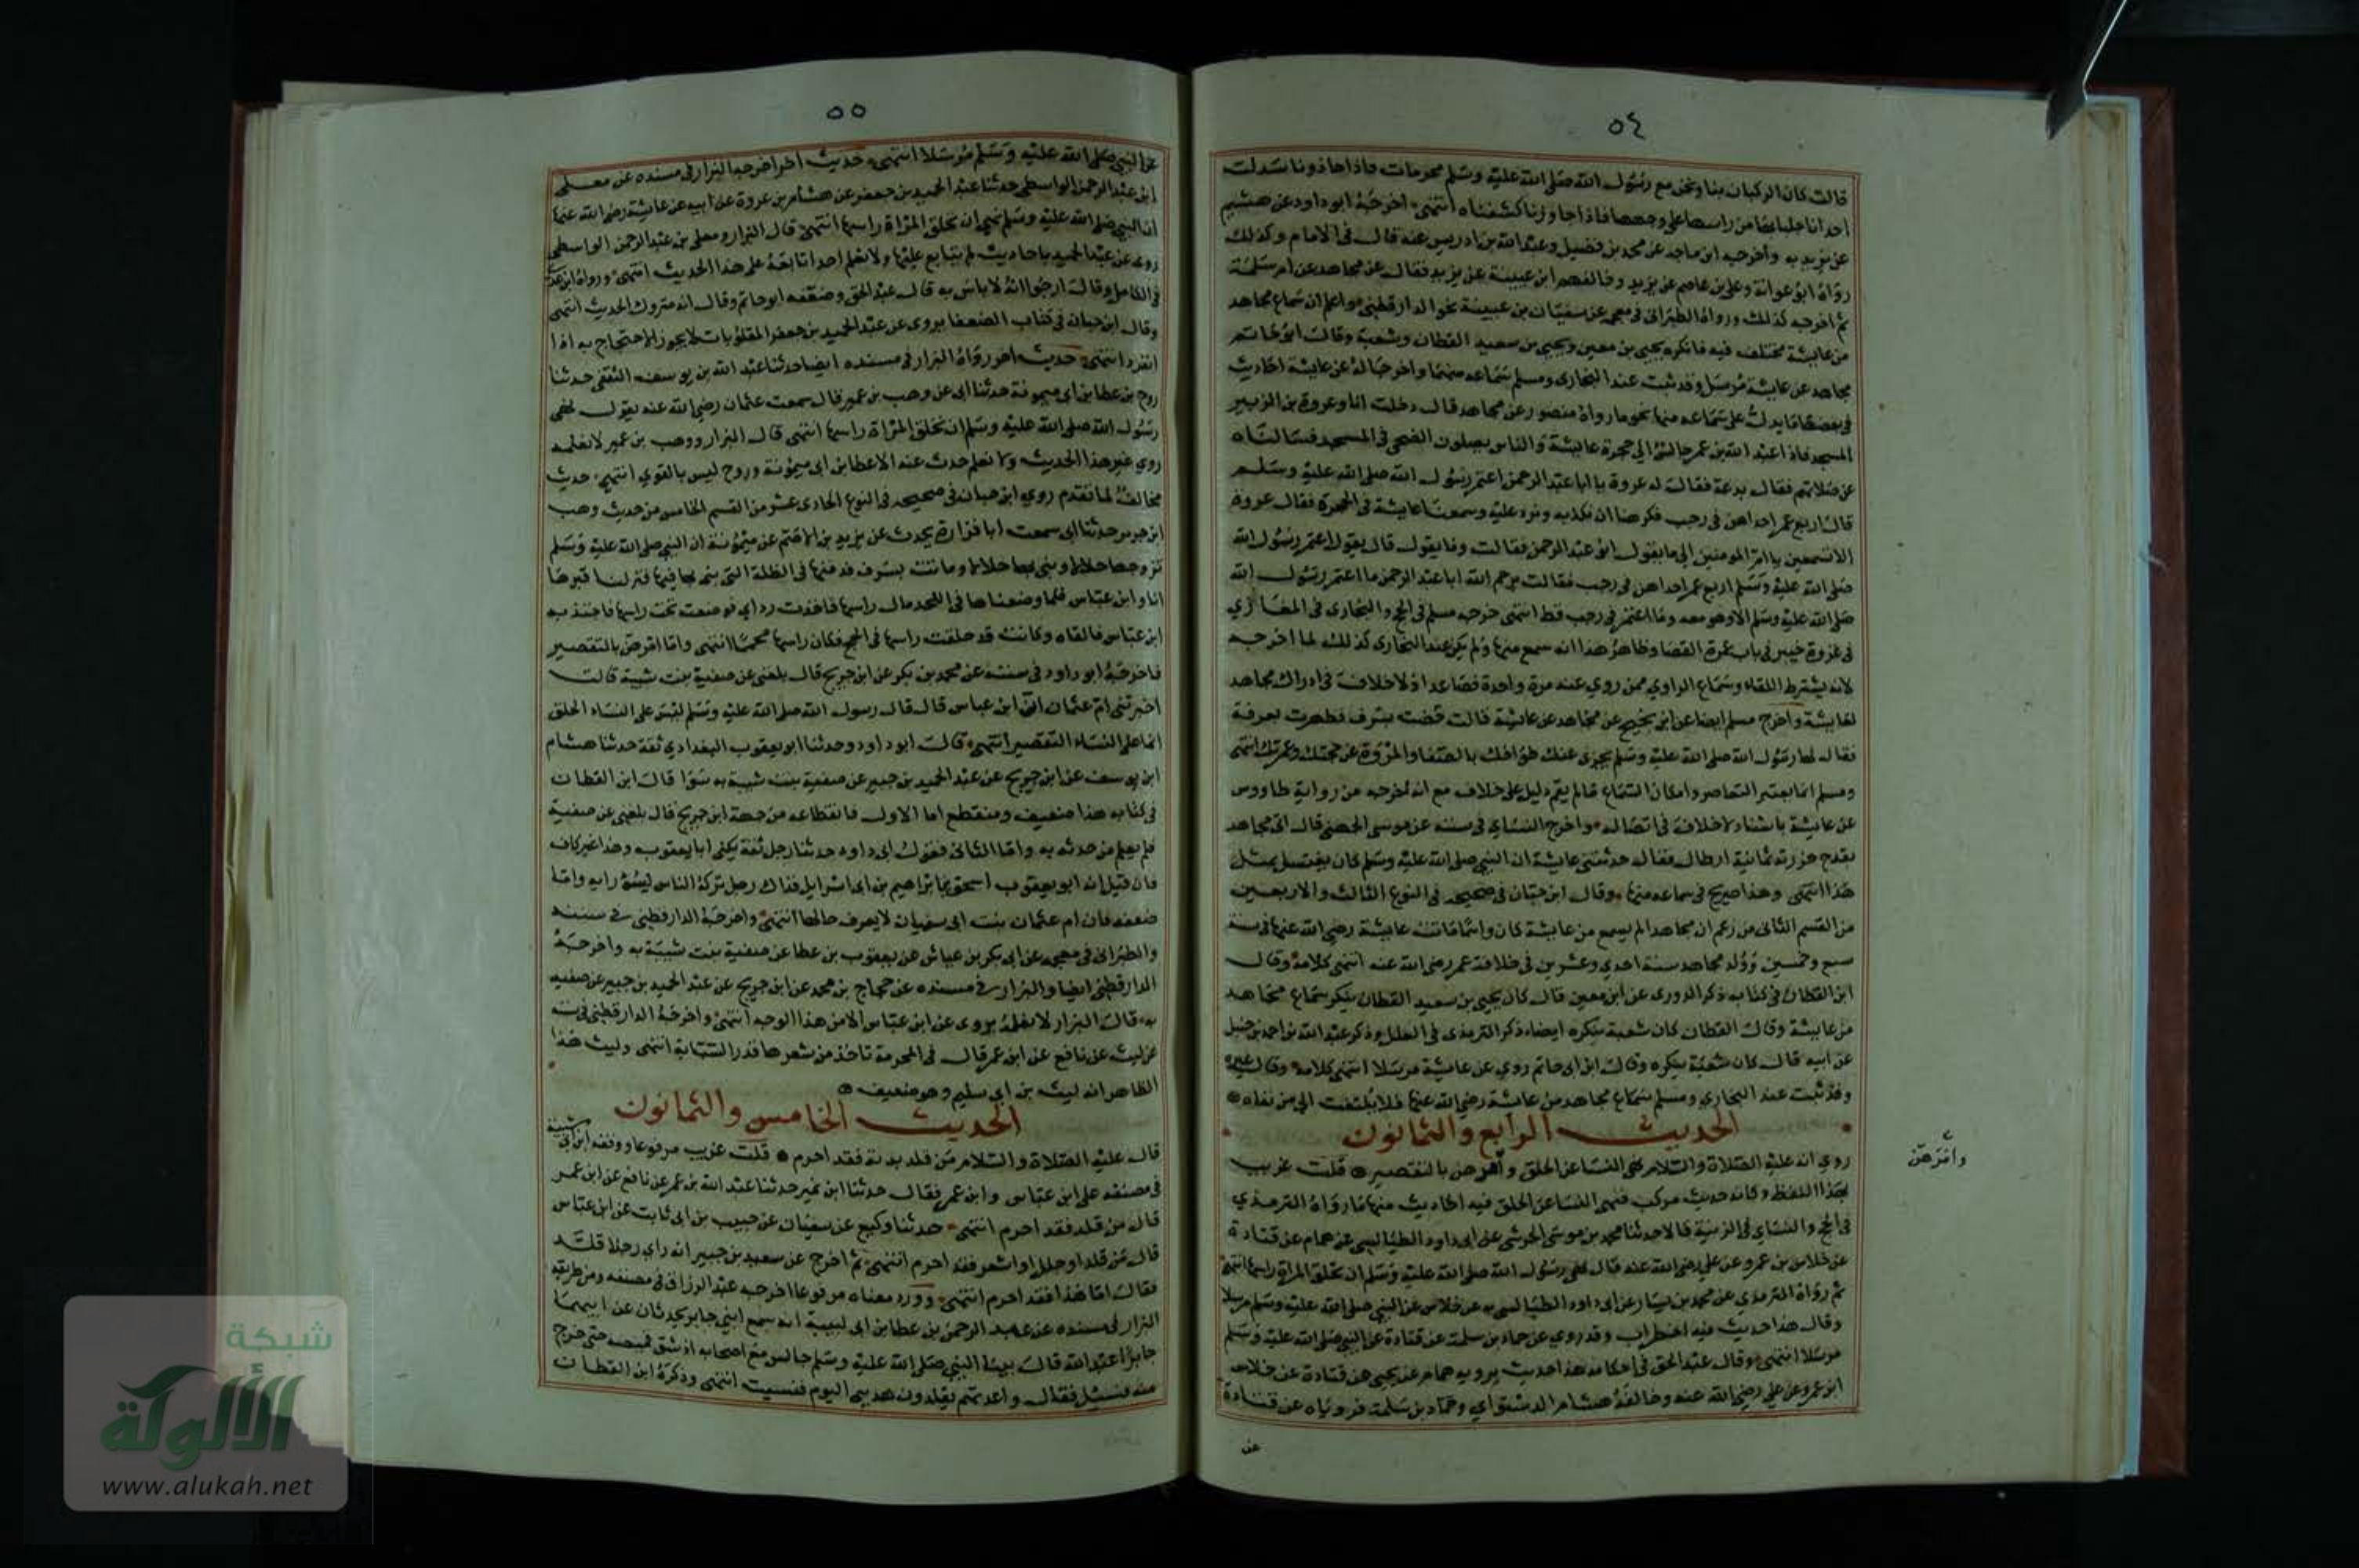 ٥٤
قالت كان الركبان بنا ونحن مع رسول الله صلى الله عليه وسلم محرمات فاذا حاذونا سدلت
احدانا جلبابها من راسها على وجهها فاذا جاوزنا كشفناه انتهى اخرجه ابو داود عن هشيم
عن يزيد به واخرجه ابن ماجه عن محمد بن فضيل وعبد الله بن ادريس عنه قال في الامام وكذلك
رواه ابو عوانة وعلي بن عاصم عن يزيد وخالفهم ابن عيينة عن يزيد فقال عن مجاهد عن ام سلمة
ثم اخرجه كذلك ورواه الطبراني في معجمه عن سفيان بن عيينة نحو الدارقطني واعلم ان سماع مجاهد
من عايشة مختلف فيه فانكره يحيى بن معين ويحيى بن سعيد القطان وشعبة وقال ابو حاتم
مجاهد عن عايشة مرسل وقد ثبت عند البخاري ومسلم سماعه منها واخرجا له عن عايشة احاديث
في بعضها ما يدل على سماعه منها نحو ما رواه منصور عن مجاهد قال دخلت انا وعروة بن الزبير
المسجد فاذا عبد الله بن عمر جالس الى حجرة عايشة والناس يصلون الضحى في المسجد فسالناه
عن صلاتهم فقال بدعة فقال له عروة يا ابا عبد الرحمن اعتمر رسول الله صلى الله عليه وسلم
قال اربع عمر احداهن في رجب فكرهنا ان نكذبه ونرد عليه وسمعنا عايشة في الحجرة فقال عروة
الا تسمعين يا ام المومنين الى ما يقول ابو عبد الرحمن فقالت وما يقول قال يقول اعتمر رسول الله
صلى الله عليه وسلم اربع عمر احداهن في رجب فقالت يرحم الله ابا عبد الرحمن ما اعتمر رسول الله
صلى الله عليه وسلم الا وهو معه وما اعتمر في رجب قط انتهى خرجه مسلم في الحج والبخاري في المغازي
في غزوة خيبر في باب عمرة القضا وظاهر هذا انه سمع منها ولم يكن عند البخاري كذلك لما اخرجه
لانه يشترط اللقاء وسماع الراوي ممن روي عنه مرة واحدة فصاعدا اذ لا خلاف في ادراك مجاهد
لعايشة واخرج مسلم ايضا عن ابن ابي نجيح عن مجاهد عن عايشة قالت حضت بسرف فطهرت بعرفة
فقال لها رسول الله صلى الله عليه وسلم يجزى عنك طوافك بالصفا والمروة عن حجتك وعمرتك انتهى
ومسلم انما يعتبر التعاصر وامكان السماع ما لم يقم دليل على خلافه مع انه اخرجه من رواية طاووس
عن عايشة باسناد لا خلاف في اتصاله واخرج النساي في سننه عن موسى الجهني قال اتى مجاهد
بقدح حزرته ثمانية ارطال فقال حدثتني عايشة ان النبي صلى الله عليه وسلم كان يغتسل بمثل
هذا انتهى وهذا صريح في سماعه منها وقال ابن حبان في صحيحه في النوع الثالث والاربعين
من القسم الثاني من زعم ان مجاهدا لم يسمع من عايشة كان واهما ماتت عايشة رضي الله عنها في سنة
سبع وخمسين وولد مجاهد سنة احدي وعشرين في خلافة عمر رضي الله عنه انتهى كلامه وقال
ابن القطان في كتابه ذكر الدوري عن ابن معين قال كان يحيى بن سعيد القطان ينكر سماع مجاهد
من عايشة وقال القطان كان شعبة ينكره ايضا ذكره الترمذي في العلل وذكر عبد الله بن احمد بن حنبل
عن ابيه قال كان شعبة ينكره وقال ابن ابي حاتم روي عن عايشة مرسلا انتهى كلامه وقال غيره
وقد ثبت عند البخاري ومسلم سماع مجاهد من عايشة رضي الله عنها فلا يلتفت الى من نفاه
الحديث الرابع والثمانون
روي انه عليه الصلاة والسلام نهى النسا عن الحلق وامرهن بالتقصير قلت غريب
وامرهن
بهذا اللفظ وكانه حديث مركب فنهي النسا عن الحلق فيه احاديث منها ما رواه الترمذي
في الحج والنساي في الزينة قالا حدثنا محمد بن موسى الحرشي عن ابي داود الطيالسي عن همام عن قتادة
عن خلاس بن عمرو عن علي رضي الله عنه قال نهى رسول الله صلى الله عليه وسلم ان تحلق المراة راسها انتهى
ثم رواه الترمذي عن محمد بن بشار عن ابي داود الطيالسي به عن خلاس عن النبي صلى الله عليه وسلم مرسلا
وقال هذا حديث فيه اضطراب وقد روي عن حماد بن سلمة عن قتادة عن النبي صلى الله عليه وسلم
مرسلا انتهى وقال عبد الحق في احكامه هذا حديث يرويه همام عن يحيى عن قتادة عن خلاس
ابن عمرو عن علي رضي الله عنه وخالفه هشام الدستواي وحماد بن سلمة فروياه عن قتادة
عن
٥٥
عن النبي صلى الله عليه وسلم مرسلا انتهى حديث اخر اخرجه البزار في مسنده عن معلى
ابن عبد الرحمن الواسطي حدثنا عبد الحميد بن جعفر عن هشام بن عروة عن ابيه عن عايشة رضي الله عنها
ان النبي صلى الله عليه وسلم نهى ان تحلق المراة راسها انتهى قال البزار ومعلى بن عبد الرحمن الواسطي
روى عن عبد الحميد باحاديث لم يتابع عليها ولا نعلم احدا تابعه على هذا الحديث انتهى ورواه ابن عدي
في الكامل وقال ارجوا انه لا باس به قال عبد الحق وضعفه ابو حاتم وقال انه متروك الحديث انتهى
وقال ابن حبان في كتاب الضعفا يروى عن عبد الحميد بن جعفر المقلوبات لا يجوز الاحتجاج به اذا
انفرد انتهى حديث اخر رواه البزار في مسنده ايضا حدثنا عبد الله بن يوسف الثقفي حدثنا
روح بن عطا بن ابي ميمونة حدثنا ابي عن وهب بن عمير قال سمعت عثمان رضي الله عنه يقول نهى
رسول الله صلى الله عليه وسلم ان تحلق المراة راسها انتهى قال البزار ووهب بن عمير لا نعلمه
روي غير هذا الحديث ولا نعلم حدث عنه الا عطا بن ابي ميمونة وروح ليس بالقوي انتهى حديث
مخالف لما تقدم روي ابن حبان في صحيحه في النوع الحادي عشر من القسم الخامس من حديث وهب
ابن جرير حدثنا ابي سمعت ابا فزارة يحدث عن يزيد بن الاصم عن ميمونة ان النبي صلى الله عليه وسلم
تزوجها حلالا وبنى بها حلالا وماتت بسرف فدفنها في الظلة التي بنى بها فيها فنزلنا قبرها
انا وابن عباس فلما وضعناها في اللحد مال راسها فاخذت رداي فوضعت تحت راسها فاجتذبه
ابن عباس فالقاه وكانت قد حلقت راسها في الحج فكان راسها محمما انتهى واما امرهن بالتقصير
فاخرجه ابو داود في سننه عن محمد بن بكر عن ابن جريج قال بلغني عن صفية بنت شيبة قالت
اخبرتني ام عثمان ان ابن عباس قال قال رسول الله صلى الله عليه وسلم ليس على النساء الحلق
انما على النساء التقصير انتهى قال ابو داود وحدثنا ابو يعقوب البغدادي ثقة حدثنا هشام
ابن يوسف عن ابن جريج عن عبد الحميد بن جبير عن صفية بنت شيبة به سوا قال ابن القطان
في كتابه هذا ضعيف ومنقطع اما الاول فانقطاعه من جهة ابن جريج قال بلغني عن صفية
فلم يعلم من حدثه به واما الثاني فقول ابي داود حدثنا رجل ثقة يكنى ابا يعقوب وهذا غير كاف
فان قيل انه ابو يعقوب اسحق بن ابراهيم بن ابي اسرايل فذاك رجل تركه الناس لسوء رايه واما
ضعفه فان ام عثمان بنت ابي سفيان لا يعرف حالها انتهى واخرجه الدارقطني في سننه
والطبراني في معجمه عن ابي بكر بن عياش عن يعقوب بن عطا عن صفية بنت شيبة به واخرجه
الدارقطني ايضا والبزار في مسنده عن حجاج بن محمد عن ابن جريج عن عبد الحميد بن جبير عن صفية
به قال البزار لا نعلمه يروى عن ابن عباس الا من هذا الوجه انتهى واخرجه الدارقطني في سننه
عن ليث عن نافع عن ابن عمر قال في المحرمة تاخذ من شعرها قدر السبابة انتهى وليث هذا
الظاهر انه ليث بن ابي سليم وهو ضعيف
الحديث الخامس والثمانون
قال عليه الصلاة والسلام من قلد بدنة فقد احرم قلت غريب مرفوعا ووقفه ابن ابي شيبة
في مصنفه على ابن عباس وابن عمر فقال حدثنا ابن نمير حدثنا عبد الله بن عمر عن نافع عن ابن عمر
قال من قلد فقد احرم انتهى حدثنا وكيع عن سفيان عن حبيب بن ابي ثابت عن ابن عباس
قال من قلد او جلل او اشعر فقد احرم انتهى ثم اخرج عن سعيد بن جبير انه راي رجلا قلد
فقال اما هذا فقد احرم انتهى وورد معناه مرفوعا اخرجه عبد الرزاق في مصنفه ومن طريقه
البزار في مسنده عن عبد الرحمن بن عطا بن ابي لبيبة انه سمع ابني جابر يحدثان عن ابيهما
جابر بن عبد الله قال بينا النبي صلى الله عليه وسلم جالس مع اصحابه اذ شق قميصه حتى خرج
منه فسئل فقال واعدتهم يقلدون هديي اليوم فنسيت انتهى وذكره ابن القطان
شبكة
الألوكة
www.alukah.net